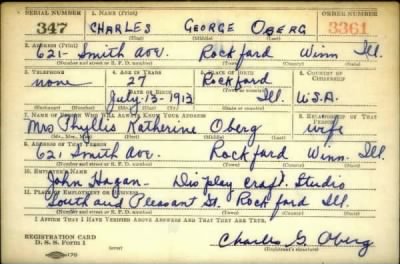 SERIAL NUMBER 1. NAME (Print) ORDER NUMBER
347 CHARLES GEORGE OBERG 3361
(First) (Middle) (Last)
2. ADDRESS (Print)
621- Smith Ave. Rockford Winn Ill.
(Number and street or R. F. D. number) (Town) (County) (State)
3. TELEPHONE 4. AGE IN YEARS 5. PLACE OF BIRTH 6. COUNTRY OF CITIZENSHIP
none 27 Rockford
DATE OF BIRTH
July-13-1913 Ill. U.S.A.
7. NAME OF PERSON WHO WILL ALWAYS KNOW YOUR ADDRESS 8. RELATIONSHIP OF THAT PERSON
Mrs Phyllis Katherine Oberg wife
(Mr., Mrs., Miss) (First) (Middle) (Last)
9. ADDRESS OF THAT PERSON
621 Smith Ave. Rockford Winn. Ill.
(Number and street or R. F. D. number) (Town) (County) (State)
10. EMPLOYER'S NAME
John Hagan- Display craft. Studio
11. PLACE OF EMPLOYMENT OR BUSINESS
South and Pleasant St. Rockford Ill.
(Number and street or R. F. D. number) (Town) (County) (State)
I AFFIRM THAT I HAVE VERIFIED ABOVE ANSWERS AND THAT THEY ARE TRUE.
REGISTRATION CARD
D. S. S. Form 1
Charles G. Oberg
(Registrant's signature)